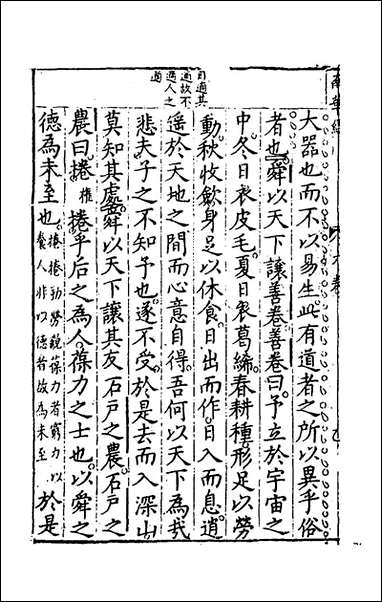 大器也而不以易生此有道者之所以異乎俗
者也舜以天下讓善卷善卷曰予立於宇宙之
中冬日衣皮毛夏日衣葛絺春耕種形足以勞
動秋收斂身足以休食日出而作日入而息逍
遙於天地之間而心意自得吾何以天下為哉
悲夫子之不知予也遂不受於是去而入深山
莫知其處舜以天下讓其友石戶之農石戶之
農曰捲捲乎后之為人葆力之士也以舜之
德為未至也捲捲勤勞貌葆力者窮力以養人非以德者故為未至於是
自適其
適故不
適人之
適